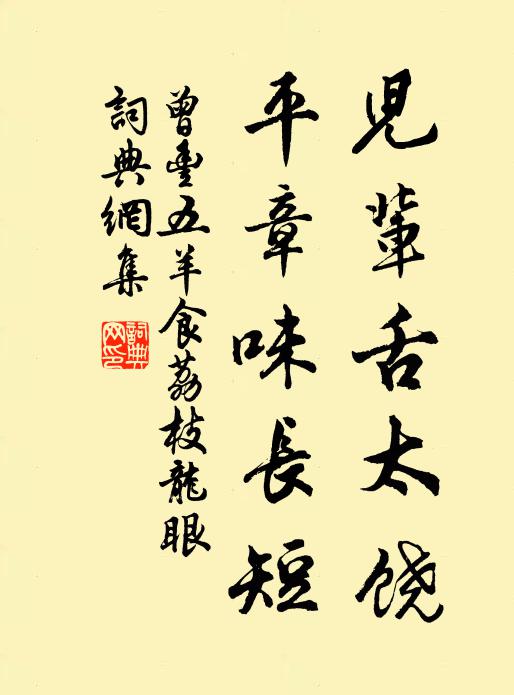 兒輩舌太饒
平章味長短
曾豐五羊食荔枝龍眼
詞典網集
詞典網印